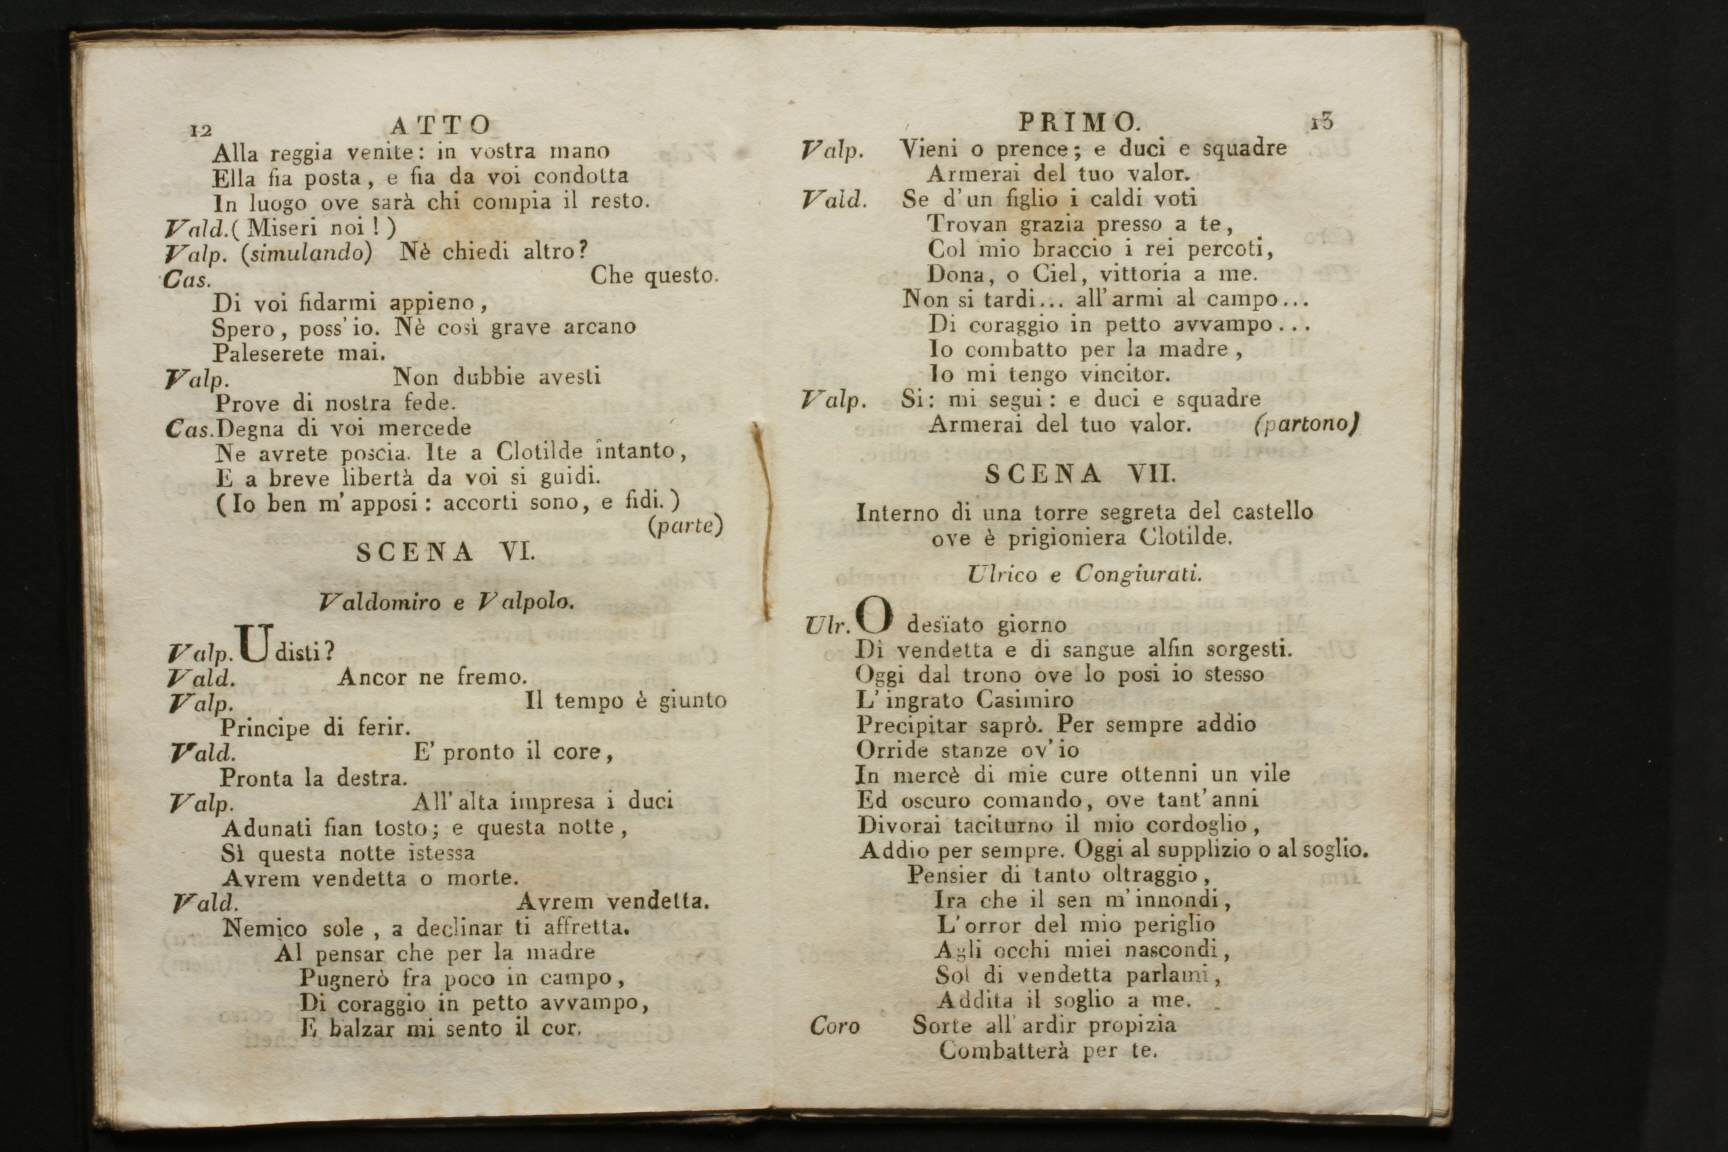 12 ATTO
Alla reggia venite: in vostra mano
Ella fia posta, e fia da voi condotta
In luogo ove sarà chi compia il resto.
Vald. (Miseri noi!)
Valp. (simulando) Nè chiedi altro?
Cas. Che questo.
Di voi fidarmi appieno,
Spero, poss' io. Nè così grave arcano
Paleserete mai.
Valp. Non dubbie avesti
Prove di nostra fede.
Cas. Degna di voi mercede
Ne avrete poscia. Ite a Clotilde intanto,
E a breve libertà da voi si guidi.
(Io ben m' apposi: accorti sono, e fidi.)
(parte)
SCENA VI.
Valdomiro e Valpolo.
Valp. Udisti?
Vald. Ancor ne fremo.
Valp. Il tempo è giunto
Principe di ferir.
Vald. E' pronto il core,
Pronta la destra.
Valp. All' alta impresa i duci
Adunati fian tosto; e questa notte,
Sì questa notte istessa
Avrem vendetta o morte.
Vald. Avrem vendetta.
Nemico sole, a declinar ti affretta.
Al pensar che per la madre
Pugnerò fra poco in campo,
Di coraggio in petto avvampo,
E balzar mi sento il cor.
PRIMO. 13
Valp. Vieni o prence; e duci e squadre
Armerai del tuo valor.
Vald. Se d' un figlio i caldi voti
Trovan grazia presso a te,
Col mio braccio i rei percoti,
Dona, o Ciel, vittoria a me.
Non si tardi... all' armi al campo...
Di coraggio in petto avvampo...
Io combatto per la madre,
Io mi tengo vincitor.
Valp. Si: mi segui: e duci e squadre
Armerai del tuo valor. (partono)
SCENA VII.
Interno di una torre segreta del castello
ove è prigioniera Clotilde.
Ulrico e Congiurati.
Ulr. O desïato giorno
Di vendetta e di sangue alfin sorgesti.
Oggi dal trono ove lo posi io stesso
L' ingrato Casimiro
Precipitar saprò. Per sempre addio
Orride stanze ov' io
In mercè di mie cure ottenni un vile
Ed oscuro comando, ove tant' anni
Divorai taciturno il mio cordoglio,
Addio per sempre. Oggi al supplizio o al soglio.
Pensier di tanto oltraggio,
Ira che il sen m' innondi,
L' orror del mio periglio
Agli occhi miei nascondi,
Sol di vendetta parlami,
Addita il soglio a me.
Coro Sorte all' ardir propizia
Combatterà per te.